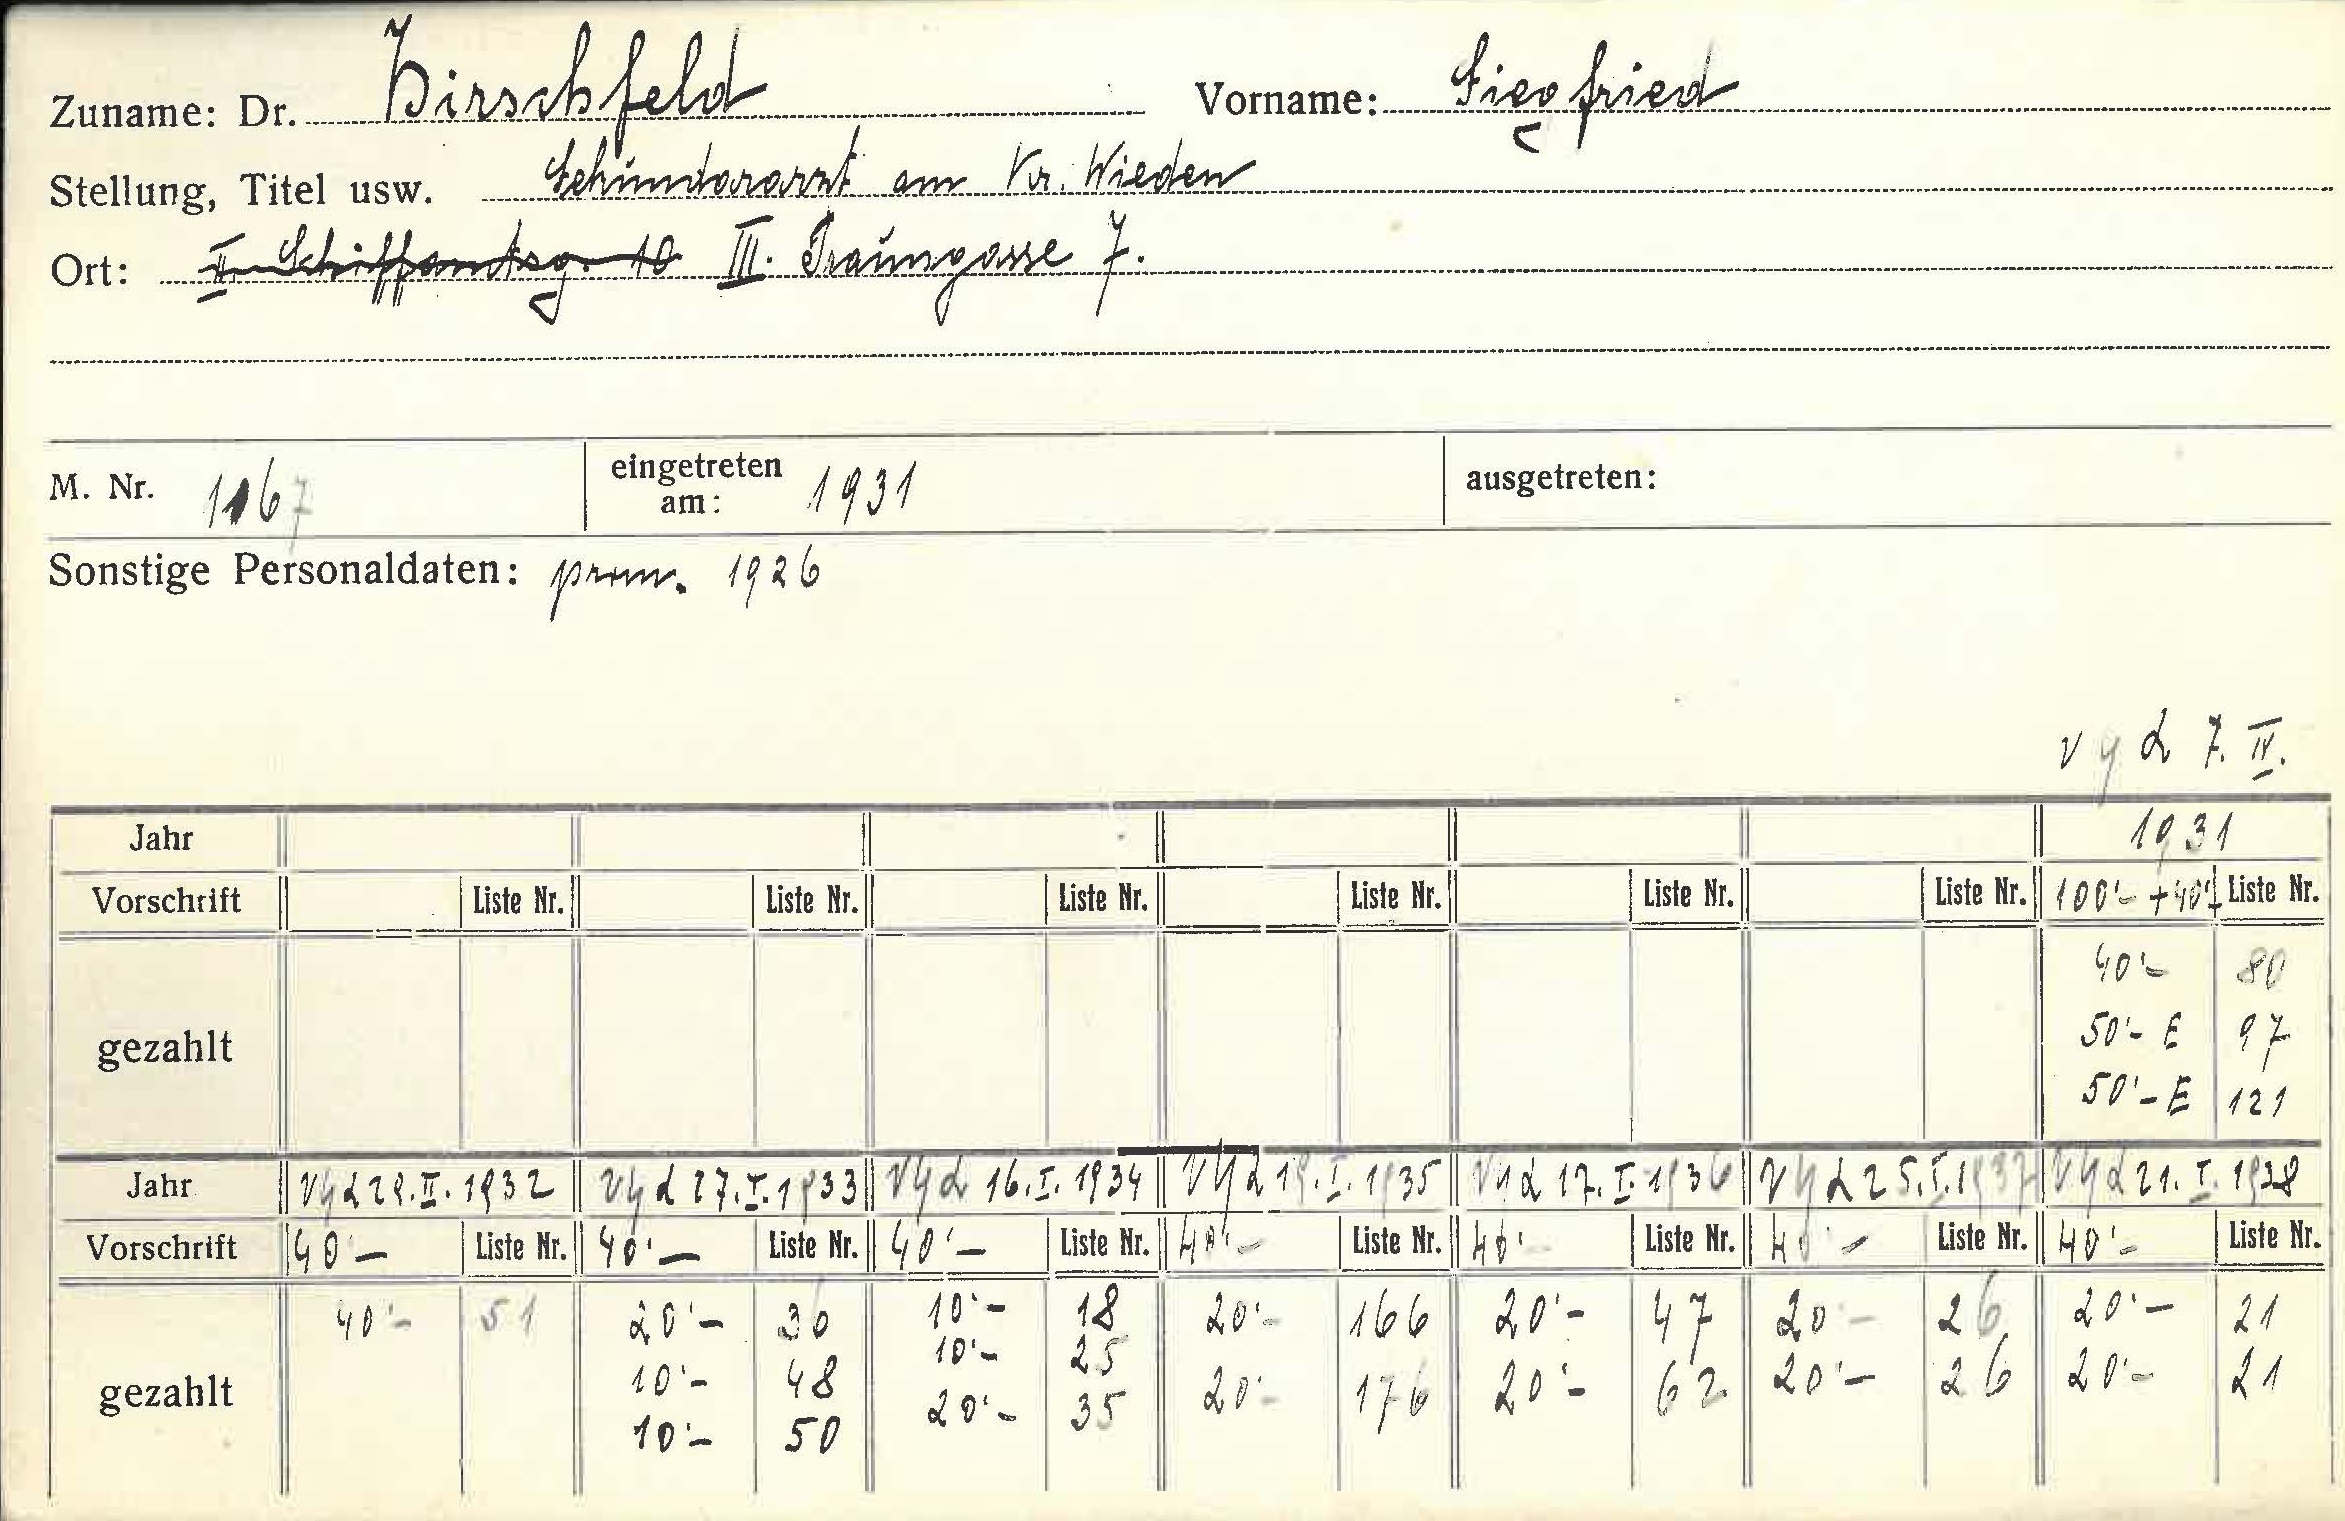 Zuname: Dr. Hirschfeld Vorname: Siegfried
Stellung, Titel usw. Sekundararzt am Kr. Wieden
Ort: II. Schiffamtsg. 10 III. Traungasse 7.
M. Nr. 1167 eingetreten am: 1931 ausgetreten:
Sonstige Personaldaten: prom. 1926
7. IV.
Jahr 1931
Vorschrift Liste Nr. Liste Nr. Liste Nr. Liste Nr. Liste Nr. Liste Nr. 100'- + 40'- Liste Nr.
40'- 80
gezahlt 50'- E 97
50'- E 121
Jahr II. 1932 27. I. 1933 16. I. 1934 I. 1935 17. I. 1936 25. I. 1937 21. I. 1938
Vorschrift 40'- Liste Nr. 40'- Liste Nr. 40'- Liste Nr. 40'- Liste Nr. 40'- Liste Nr. 40'- Liste Nr. 40'- Liste Nr.
40'- 51 20'- 30 10'- 18 20'- 166 20'- 47 20'- 26 20'- 21
10'- 25
gezahlt 10'- 48 20'- 35 20'- 176 20'- 62 20'- 26 20'- 21
10'- 50